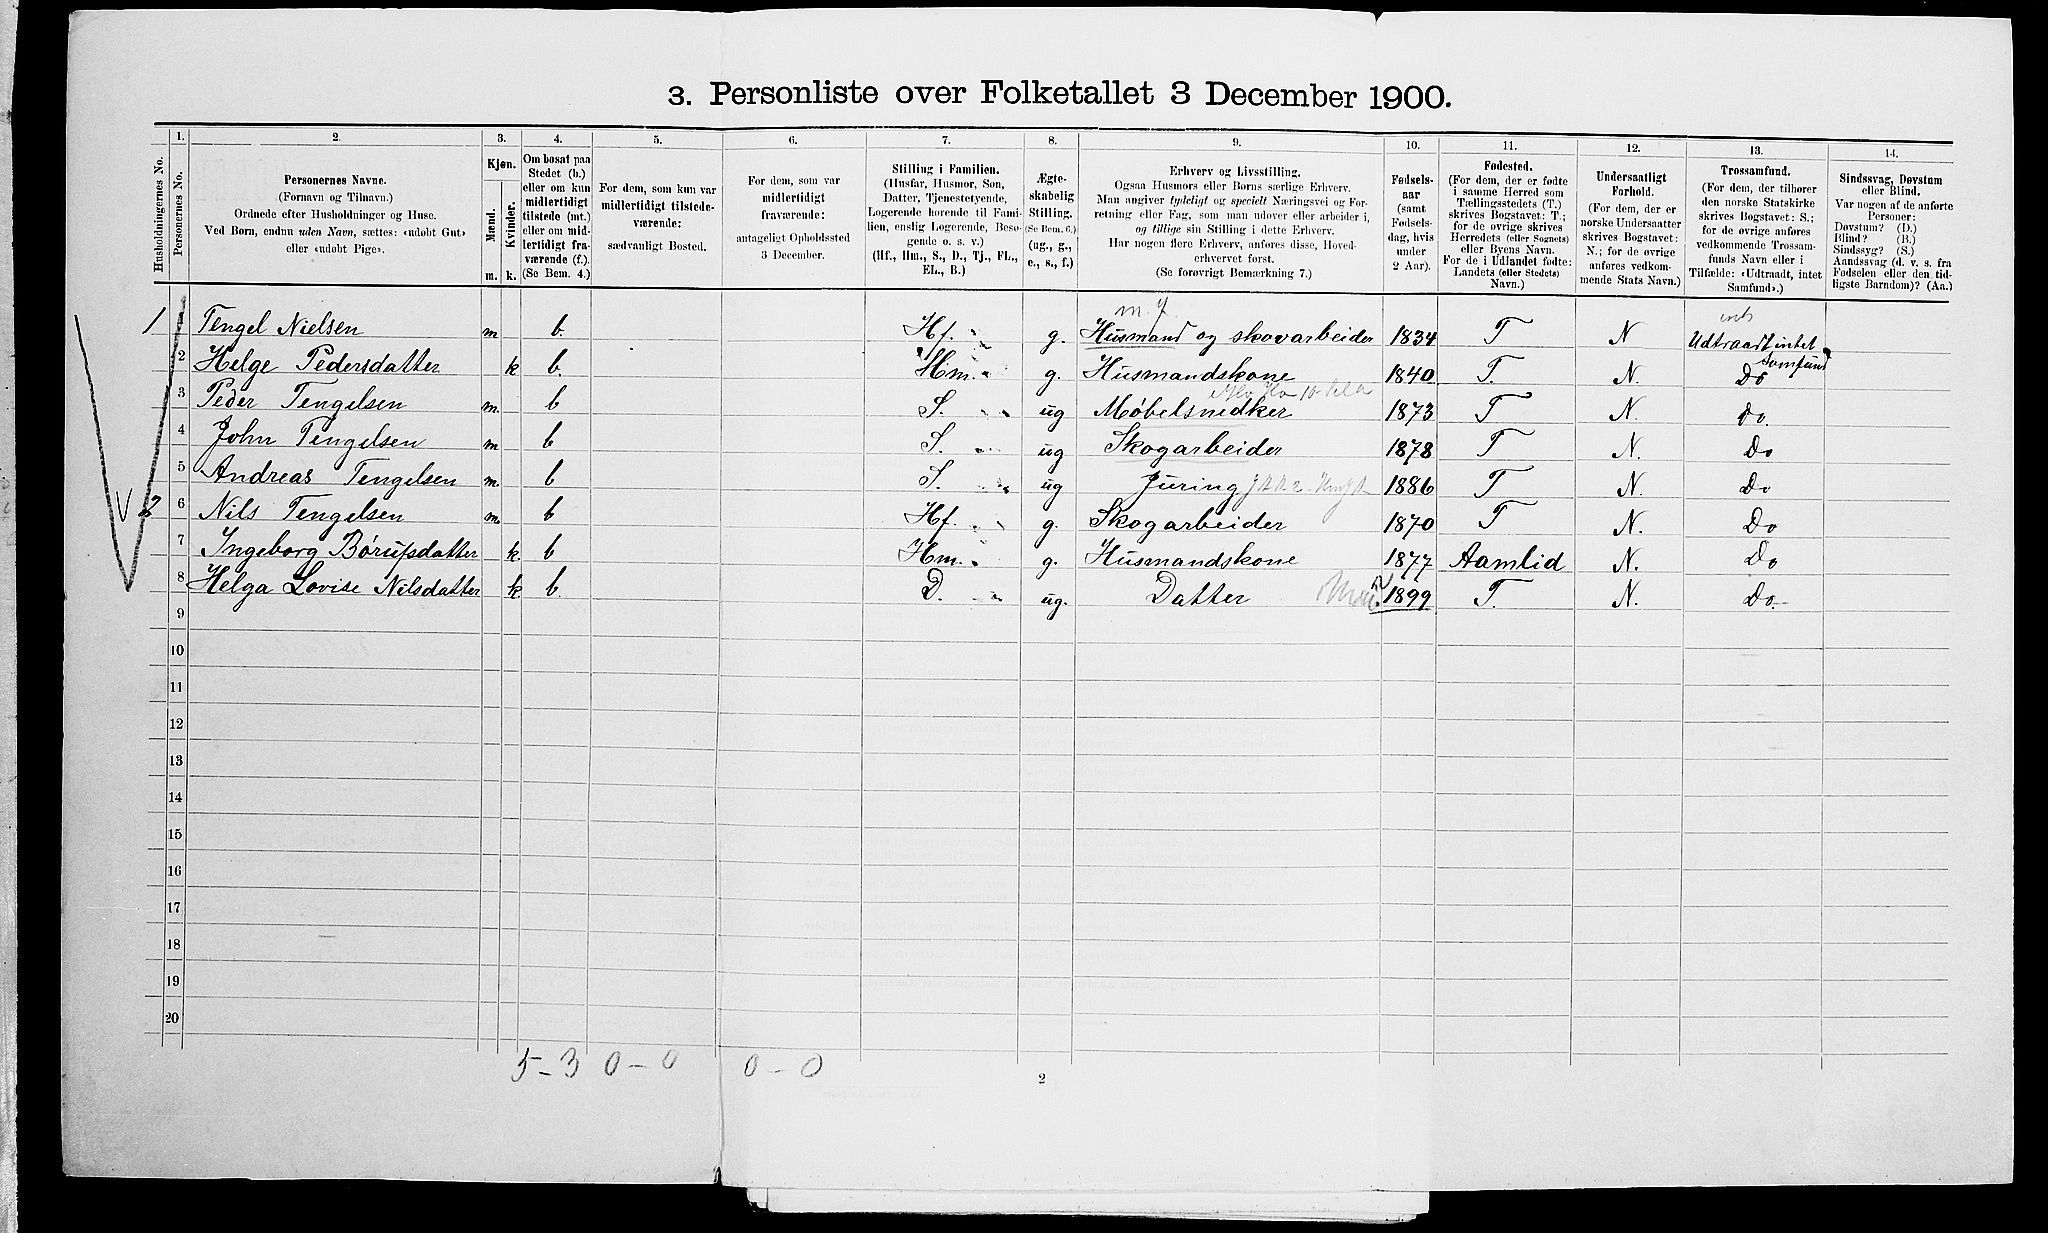 3. Personliste over Folketallet 3 December 1900.
Husholdningernes No.
1. Personernes No.
2. Personernes Navne.
(Fornavn og Tilnavn.)
Ordnede efter Husholdninger og Huse.
Ved Børn, endnu uden Navn, sættes: «udøbt Gut»
eller «udøbt Pige».
3. Kjøn.
Mænd. Kvinder.
m. k.
4. Om bosat paa
Stedet (b.)
eller om kun
midlertidigt
tilstede (mt.)
eller om mid-
lertidigt fra-
værende (f.).
(Se Bem. 4.)
5. For dem, som kun var
midlertidigt tilstede-
værende:
sædvanligt Bosted.
6. For dem, som var
midlertidigt
fraværende:
antageligt Opholdssted
3 December.
7. Stilling i Familien.
(Husfar, Husmor, Søn,
Datter, Tjenestetyende,
Logerende hørende til Fami-
lien, enslig Logerende, Besø-
gende o. s. v.)
(Hf., Hm., S., D., Tj., FL.,
EL., B.)
8. Ægte-
skabelig
Stilling.
(Se Bem. 6.)
(ug., g.,
e., s., f.)
9. Erhverv og Livsstilling.
Ogsaa Husmors eller Børns særlige Erhverv.
Man angiver tydeligt og specielt Næringsvei og For-
retning eller Fag, som man udøver eller arbeider i,
og tillige sin Stilling i dette Erhverv.
Har nogen flere Erhverv, anføres disse, Hoved-
erhvervet først.
(Se forøvrigt Bemærkning 7.)
10. Fødsels-
aar
(samt
Fødsels-
dag, hvis
under
2 Aar).
11. Fødested.
(For dem, der er fødte
i samme Herred som
Tællingsstedets (T.)
skrives Bogstavet: T.;
for de øvrige skrives
Herredets (eller Sognets)
eller Byens Navn.
For de i Udlandet fødte:
Landets (eller Stedets)
Navn.)
12. Undersaatligt
Forhold.
(For dem, der er
norske Undersaatter
skrives Bogstavet:
N.; for de øvrige
anføres vedkom-
mende Stats Navn.)
13. Trossamfund.
(For dem, der tilhører
den norske Statskirke
skrives Bogstavet: S.;
for de øvrige anføres
vedkommende Trossam-
funds Navn eller i
Tilfælde: «Udtraadt, intet
Samfund».)
14. Sindssvag, Døvstum
eller Blind.
Var nogen af de anførte
Personer:
Døvstum? (D.)
Blind? (B.)
Sindssyg? (S.)
Aandssvag (d. v. s. fra
Fødselen eller den tid-
ligste Barndom)? (Aa.)
1 1 Tengel Nielsen m b. Hf. g. Husmand og skovarbeider 1834 T N Udtraadt intet Samfund
2 Helge Pedersdatter k b. Hm. g. Husmandskone 1840 T. N. Do
3 Peder Tengelsen m. b S. ug Møbelsnedker 1873 T N. Do.
4 John Tengelsen m b S. ug Skogarbeider 1878 T N. Do
5 Andreas Tengelsen m. b S. ug Juring 1886 T N. Do
2 6 Nils Tengelsen m. b Hf. g. Skogarbeider 1870 T N. Do
7 Ingeborg Børufsdatter k b Hm. g. Husmandskone 1877 Aamlid N. Do
8 Helga Lovise Nilsdatter k b. D. ug. Datter 1899 T. N. Do.
9
10
11
12
13
14
15
16
17
18
19
20
5 - 3 0 - 0 0 - 0
2